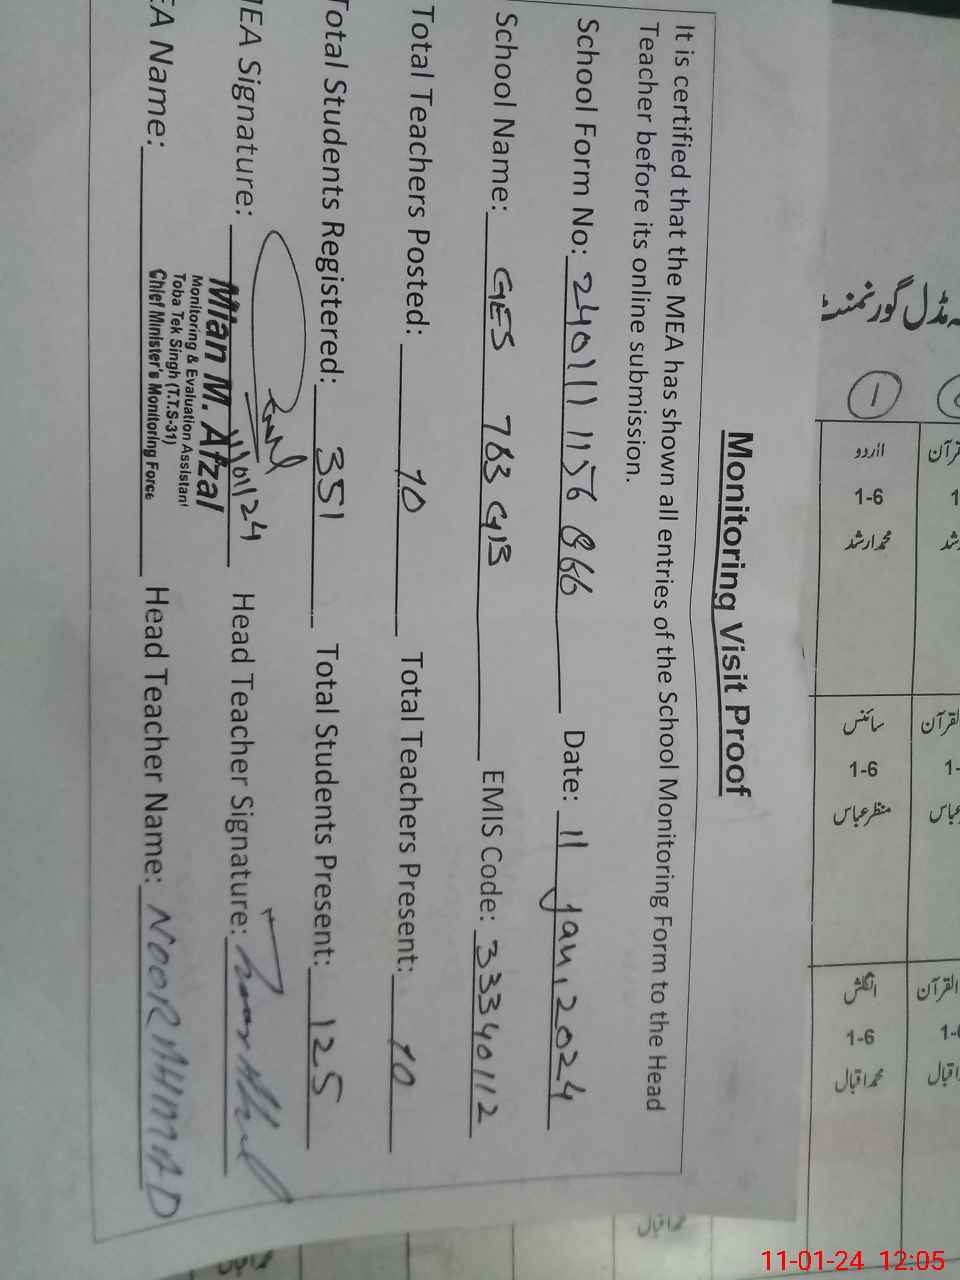 Monitoring Visit Proof
It is certified that the MEA has shown all entries of the School Monitoring Form to the Head
Teacher before its online submission.
School Form No: 240111 1156 866 Date: 11 Jan, 2024
School Name: GES 763 GB EMIS Code: 33340112
Total Teachers Posted: 10 Total Teachers Present: 10
Total Students Registered: 351 Total Students Present: 125
MEA Signature: Head Teacher Signature:
11/01/24
EA Name: Head Teacher Name: NOOR AHMAD
Mian M. Afzal
Monitoring & Evaluation Assistant
Toba Tek Singh (T.T.S-31)
Chief Minister's Monitoring Force
مڈل گورنمنٹ
1
اردو
1-6
محمد ارشد
سائنس
1-6
منظر عباس
انگلش
1-6
محمد اقبال
القرآن
القرآن
اقبال
11-01-24 12:05